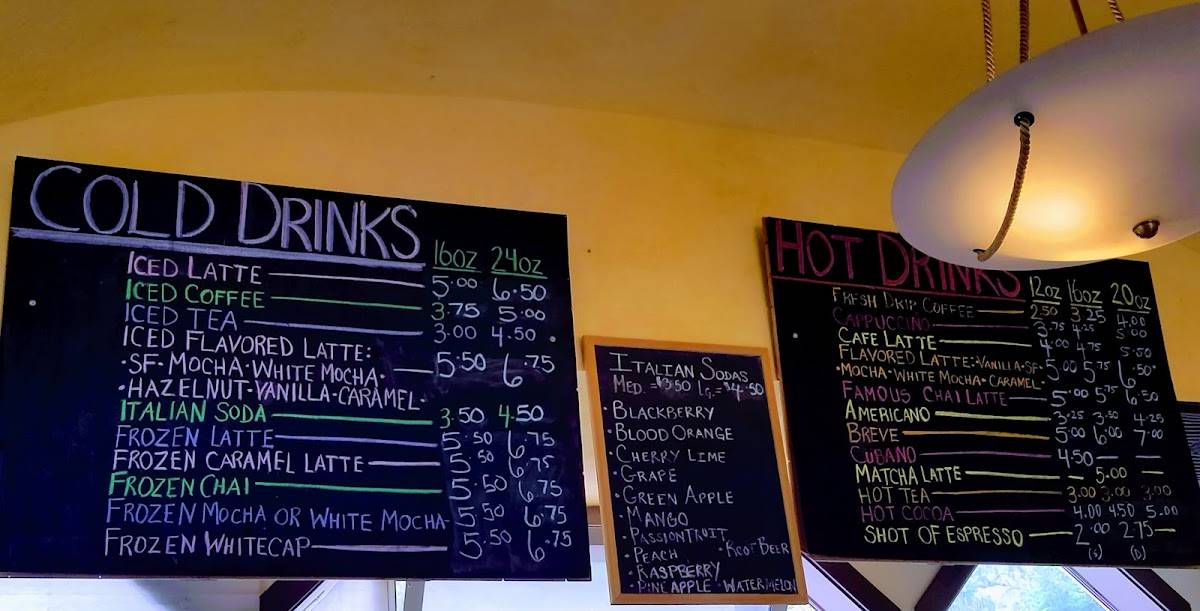 COLD DRINKS
16oz 24oz
ICED LATTE 5.00 6.50
ICED COFFEE 3.75 5.00
ICED TEA 3.00 4.50
ICED FLAVORED LATTE:
·SF·MOCHA·WHITE MOCHA· 5.50 6.75
·HAZELNUT·VANILLA·CARAMEL·
ITALIAN SODA 3.50 4.50
FROZEN LATTE 5.50 6.75
FROZEN CARAMEL LATTE 5.50 6.75
FROZEN CHAI 5.50 6.75
FROZEN MOCHA OR WHITE MOCHA 5.50 6.75
FROZEN WHITECAP 5.50 6.75
ITALIAN SODAS
MED. = $3.50 LG. = $4.50
·BLACKBERRY
·BLOOD ORANGE
·CHERRY LIME
·GRAPE
·GREEN APPLE
·MANGO
·PASSIONFRUIT
·PEACH ·ROOT BEER
·RASPBERRY
·PINEAPPLE ·WATERMELON
HOT DRINKS
12oz 16oz 20oz
FRESH DRIP COFFEE 2.50 3.25 4.00
CAPPUCCINO 3.75 4.25 5.00
CAFE LATTE 4.00 4.75 5.50
FLAVORED LATTE:·VANILLA·SF·
·MOCHA·WHITE MOCHA·CARAMEL 5.00 5.75 6.50
FAMOUS CHAI LATTE 5.00 5.75 6.50
AMERICANO 3.25 3.50 4.25
BREVE 5.00 6.00 7.00
CUBANO 4.50 — —
MATCHA LATTE — 5.00 —
HOT TEA 3.00 3.00 3.00
HOT COCOA 4.00 4.50 5.00
SHOT OF ESPRESSO 2.00 2.75 —
(S) (D)